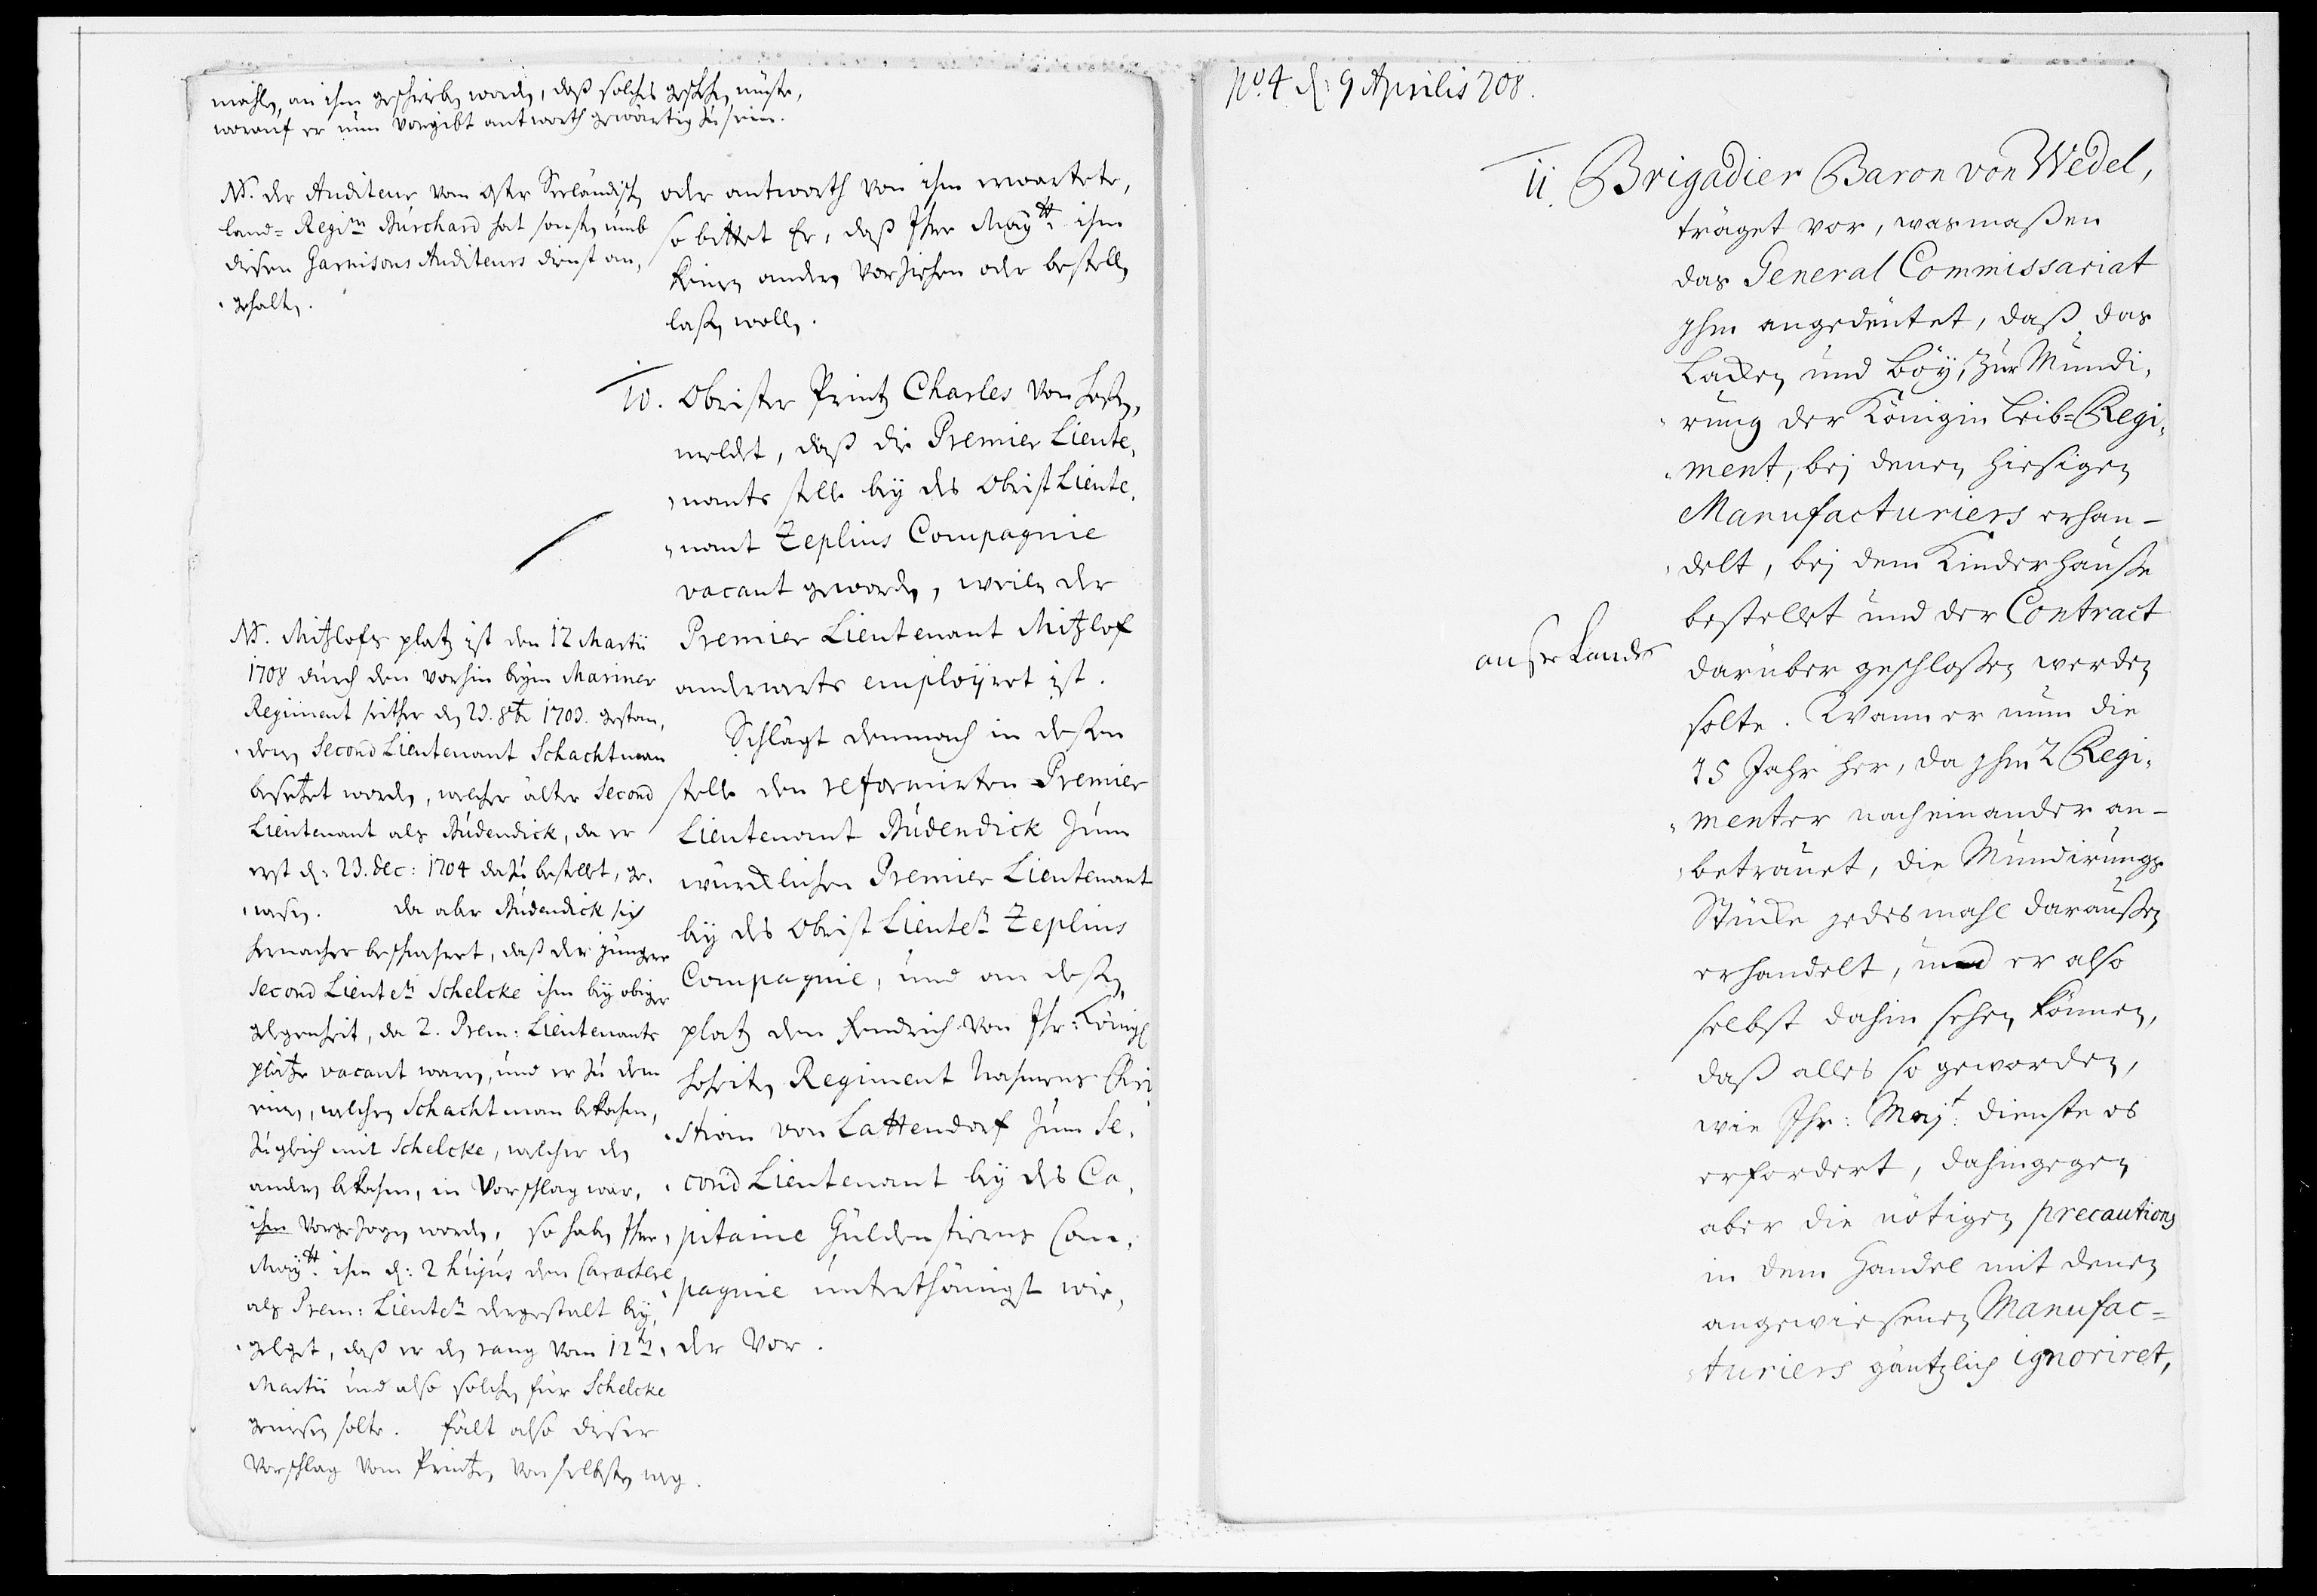 mahls, an ihm geschrieben worden, daß solches geschehen müste,
worauf er nun vorgibt antworth gewärtig zu sein.
NB. der Auditeur vom Oster Seeländischen
land= Regim Burchard hat sonsten umb
diesen Garnisons Auditeurs dienst an,
gehalten.
oder antworth von ihm erwartete,
so bittet Er, daß Ihre Maytt ihm
keinen andern vorziehen oder bestellen
laßen wollen.
10. Obrister Printz Charles von Heßen,
meldet, daß die Premier Lieute,
nants stelle bey des Obrist Lieute,
nant Zeplins Compagnie
vacant geworden, weilen der
Premier Lieutenant Mitzlof
anderwerts employiret ist.
Schlägt demnach in deßen
stelle den reformirten Premier
Lieutenant Budendick zum
würcklichen Premier Lieutenant
bey des Obrist Lieuten Zeplins
Compagnie, und an deßen
platz den Fendrich von Ihr: Königl
Hoheiten Regiment Nahmens Chri
stian von Lattendorf zum Se,
cond Lieutenant bey des Ca,
pitaine Güldenstierns Com,
pagnie unterthänigst wie,
der vor.
NB. Mitzlofs platz ist den 12 Martii
1708 durch den vorhin beym Mariner
Regiment seither den 23. 8br 1703. gestan,
denen Second Lieutenant Schachtman
besetzet worden, welcher älter Second
Lieutenant als Budendick, da er
erst d: 23. dec: 1704 dazu bestellt, ge,
wesen. da aber Budendick sich
hernacher beschwehret, daß der jüngere
Second Lieuten Schelcke ihm bey obiger
gelegenheit, da 2. Prem: Lieutenants
plätze vacant waren, und er zu dem
einen, welchen Schachtman bekahm,
zugleich mit Schelcke, welcher den
andern bekahm, in Vorschlag war,
ihm vorgezogen worden, so haben Ihre
Maytt. ihm d: 2 hujus den Caractere
als Prem: Lieuten dergestalt bey,
geleget, daß er den rang vom 12ten
Martii und also solchen für Schelcke
genießen solte. fält also dieser
Vorschlag vom Printzen von selbsten weg.
No. 4 d: 9 Aprilis 708.
11. Brigadier Baron von Wedel,
träget vor, wasmaßen
das General Commissariat
ihm angedeutet, daß das
Lacken und Böy, zur Mundi,
rung der Königin Leib=Regi,
ment, bej denen hiesigen
Manufacturiers erhan-
delt, bej dem Kinderhause
bestellet und der Contract
darüber geschloßen werden
solte. Wann er nun die
15 Jahr her, da ihm 2 Regi,
menter nacheinander an-
betrauet, die Mundirungs
Stücke jedesmahl daraußen
außer Landes
erhandelt, und er also
selbst dahin sehen können,
daß alles so geworden,
wie Ihr: Majt: dienste es
erfordert, dahingegen
aber die nötigen precautions
in dem Handel mit denen
angewiesenen Manufac=
turiers gäntzlich ignoriret,